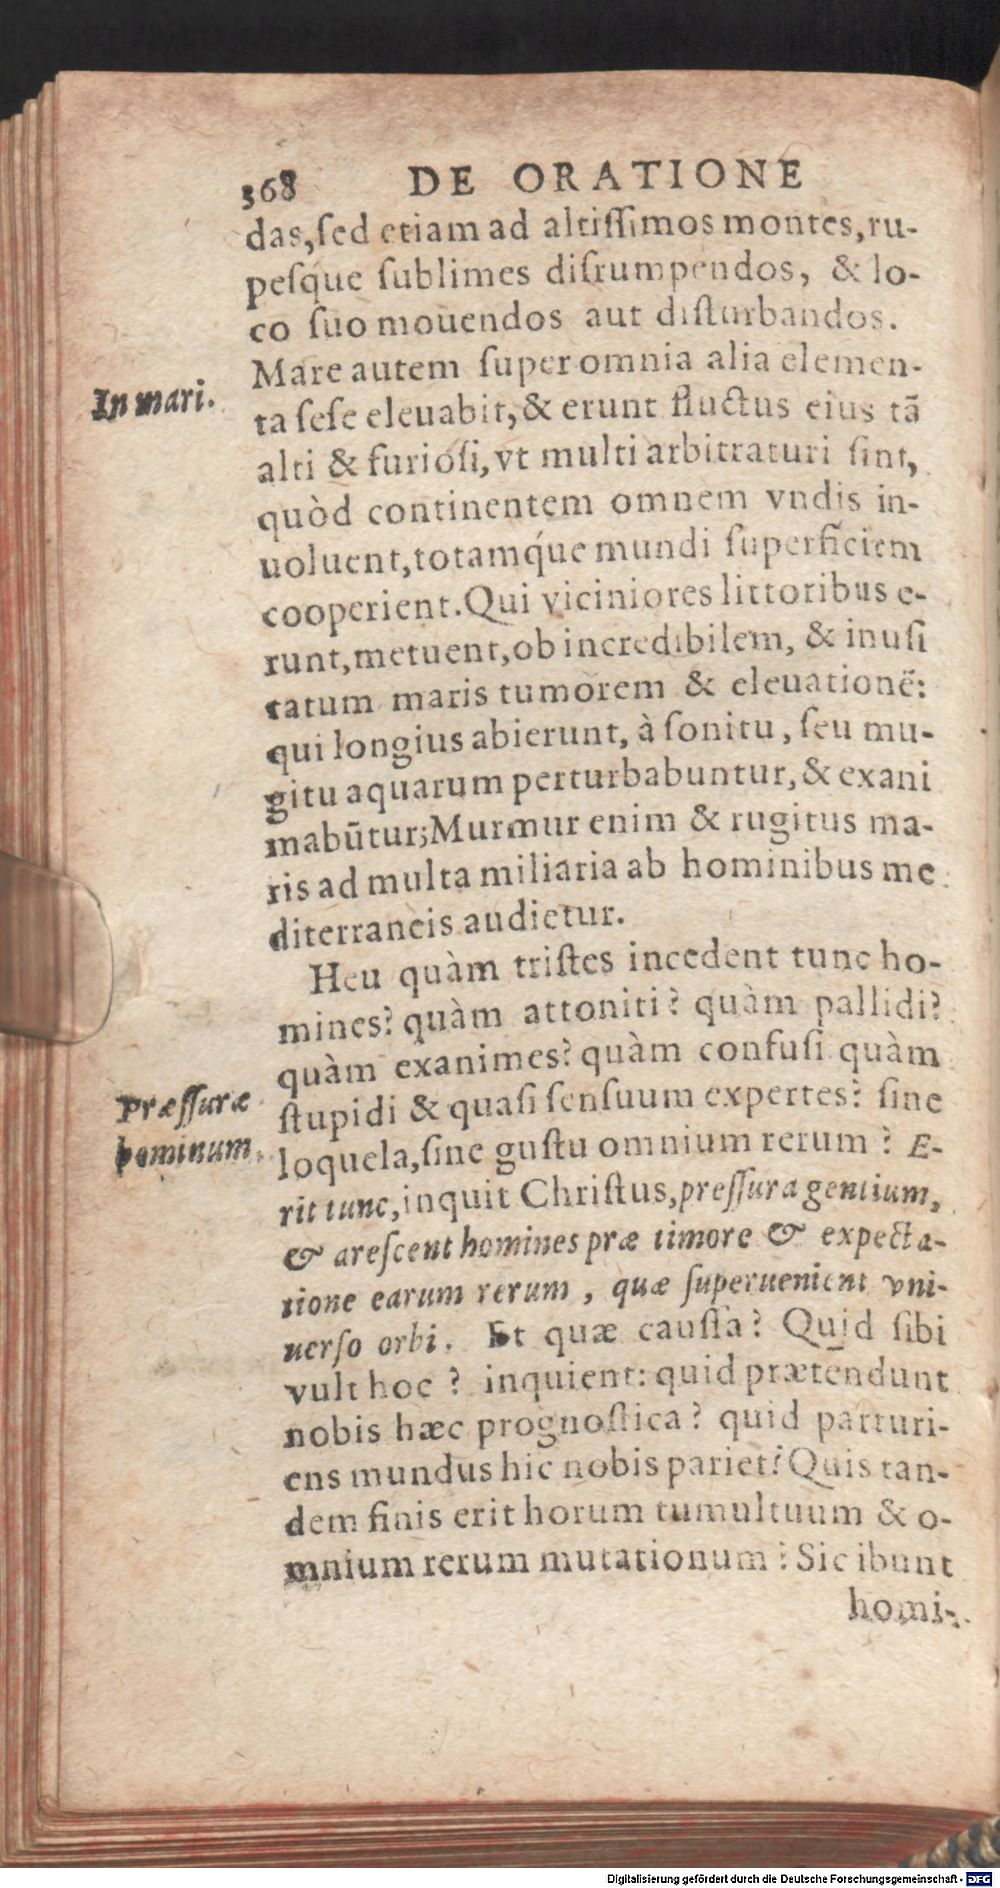 368 DE ORATIONE
das,ſed etiam ad altiſſimos montes,ru-
peſq́ue ſublimes diſrumpendos, & lo-
co ſuo mouendos aut diſturbandos.
Mare autem ſuper omnia alia elemen-
In mari.
ta ſeſe eleuabit,& erunt fluctus eius tā
alti & furioſi,vt multi arbitraturi ſint,
quòd continentem omnem vndis in-
uoluent,totamq́ue mundi ſuperficiem
cooperient.Qui viciniores littoribus e-
runt,metuent,ob incredibilem, & inuſi
tatum maris tumorem & eleuationē:
qui longius abierunt, à ſonitu, ſeu mu-
gitu aquarum perturbabuntur,& exani
mabūtur;Murmur enim & rugitus ma-
ris ad multa miliaria ab hominibus me
diterraneis audietur.
Heu quàm triſtes incedent tunc ho-
mines? quàm attoniti? quàm pallidi?
quàm exanimes? quàm confuſi quàm
Præſſuræ
hominum.
ſtupidi & quaſi ſenſuum expertes? ſine
loquela,ſine guſtu omnium rerum ? E-
rit tunc,inquit Chriſtus,preſſura gentium,
& areſcent homines præ timore & expecta-
tione earum rerum , quæ ſuperuenient vni-
uerſo orbi. Et quæ cauſſa? Quid ſibi
vult hoc ? inquient: quid prætēndunt
nobis hæc prognoſtica? quid parturi-
ens mundus hic nobis pariet? Quis tan-
dem finis erit horum tumultuum & o-
mnium rerum mutationum ? Sic ibunt
homi-
Digitalisierung gefördert durch die Deutsche Forschungsgemeinschaft - DFG